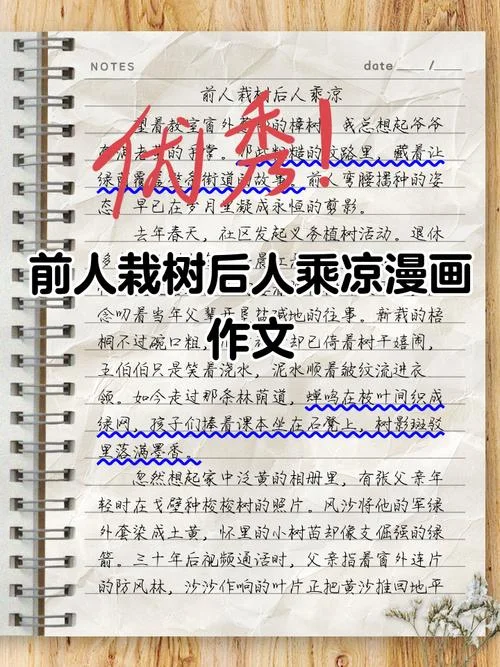 NOTES
date ____ / ____
前人栽树后人乘凉
望着教室窗外 的樟树，我总想起爷爷
优秀！
老茧的手掌。那些粗糙的纹路里，藏着让
绿 覆盖整条街道的故事。前人弯腰播种的姿
态，早已在岁月里凝成永恒的剪影。
去年春天，社区发起义务植树活动。退休
前人栽树后人乘凉漫画
作文
念叨着当年父辈开垦盐碱地的往事。新栽的梧
桐不过碗口粗， 却已停着树干嬉闹，
王伯伯只是笑着浇水，泥水顺着皱纹流进衣
领。如今走过那条林荫道，蝉鸣在枝叶间织成
绿网，孩子们捧着课本坐在石凳上，树影斑驳
里落满墨香。
忽然想起家中泛黄的相册里，有张父亲年
轻时在戈壁种梭梭树的照片。风沙将他的军绿
外套染成土黄，怀里的小树苗却像支倔强的绿
箭。三十年后视频通话时，父亲指着窗外连片
的防风林，沙沙作响的叶片正把黄沙推回地平